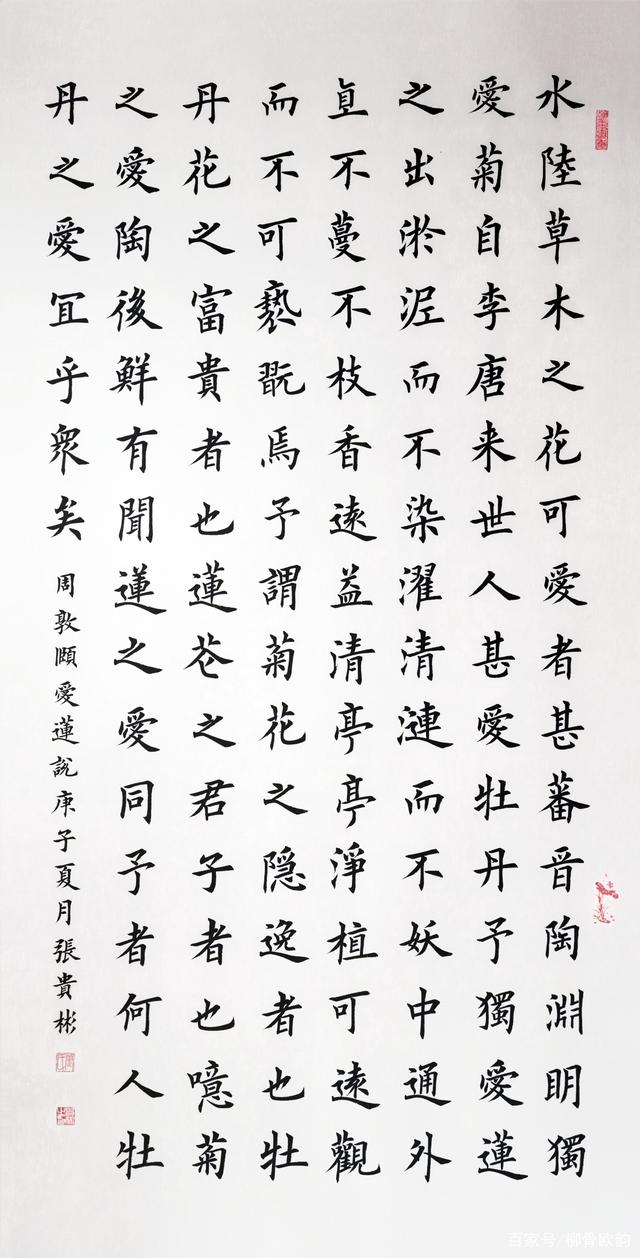 水陸草木之花可愛者甚蕃晋陶淵明獨
愛菊自李唐来世人甚愛牡丹予獨愛蓮
之出淤泥而不染濯清漣而不妖中通外
直不蔓不枝香遠益清亭亭淨植可遠觀
而不可褻翫焉予謂菊花之隱逸者也牡
丹花之富貴者也蓮花之君子者也噫菊
之愛陶後鮮有聞蓮之愛同予者何人牡
丹之愛宜乎眾矣
周敦頤愛蓮說庚子夏月張貴彬
百家号/柳骨欧韵